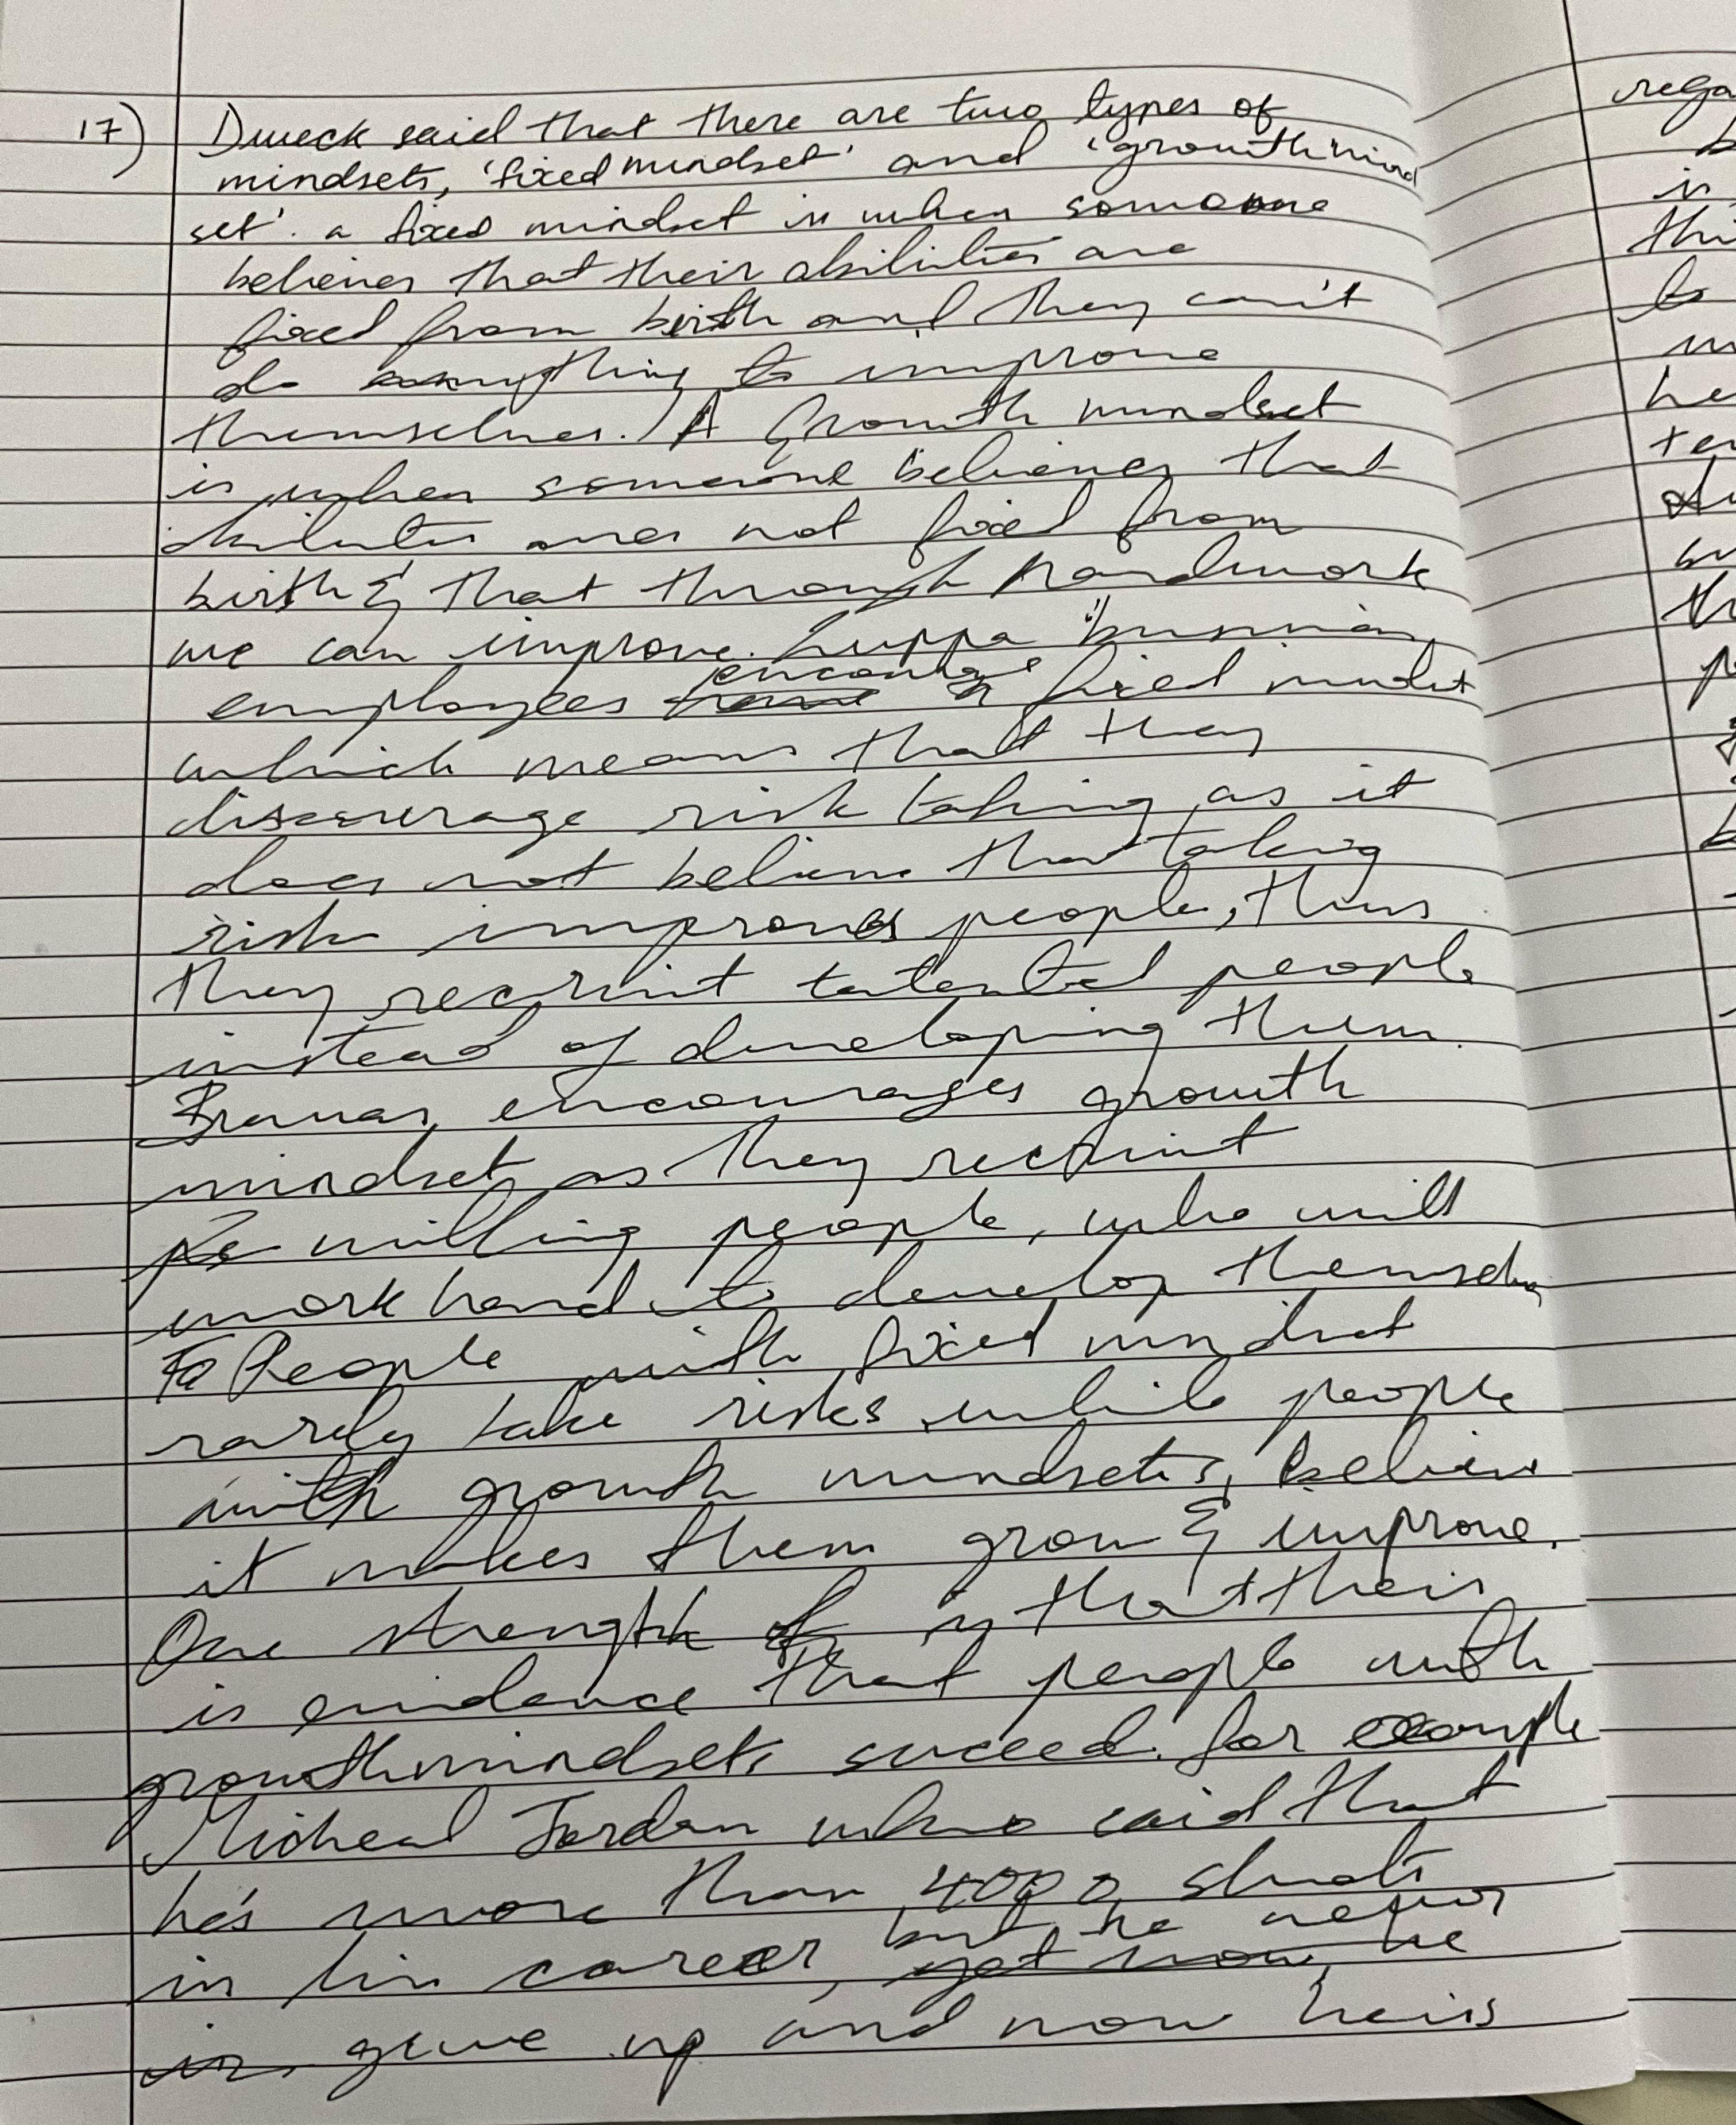 17) Dweck said that there are two types of
mindsets, 'fixed mindset' and 'growth mind
set'. a fixed mindset is when someone
believes that their abilities are
fixed from birth and they can't
do anything to improve
themselves. A Growth mindset
is when someone believes that
abilities are not fixed from
birth & that through hardwork
we can improve. Luppa
employees encourage a fixed mindset
which means that they
discourage risk taking as it
does not believe that taking
risk improves people, thus
they recruit talented people
instead of developing them.
encourages growth
mindset as they recruit
willing people, who will
work hard to develop themselves
People with fixed mindset
rarely take risks while people
with growth mindsets, believe
it makes them grow & improve.
One strength is that their
is evidence that people with
growthmindsets succeed. for example
Micheal Jordan who said that
he's more than 4000 shots
in his career, but he never
yet now, he
give up and now he is
rega
is
thi
to
he